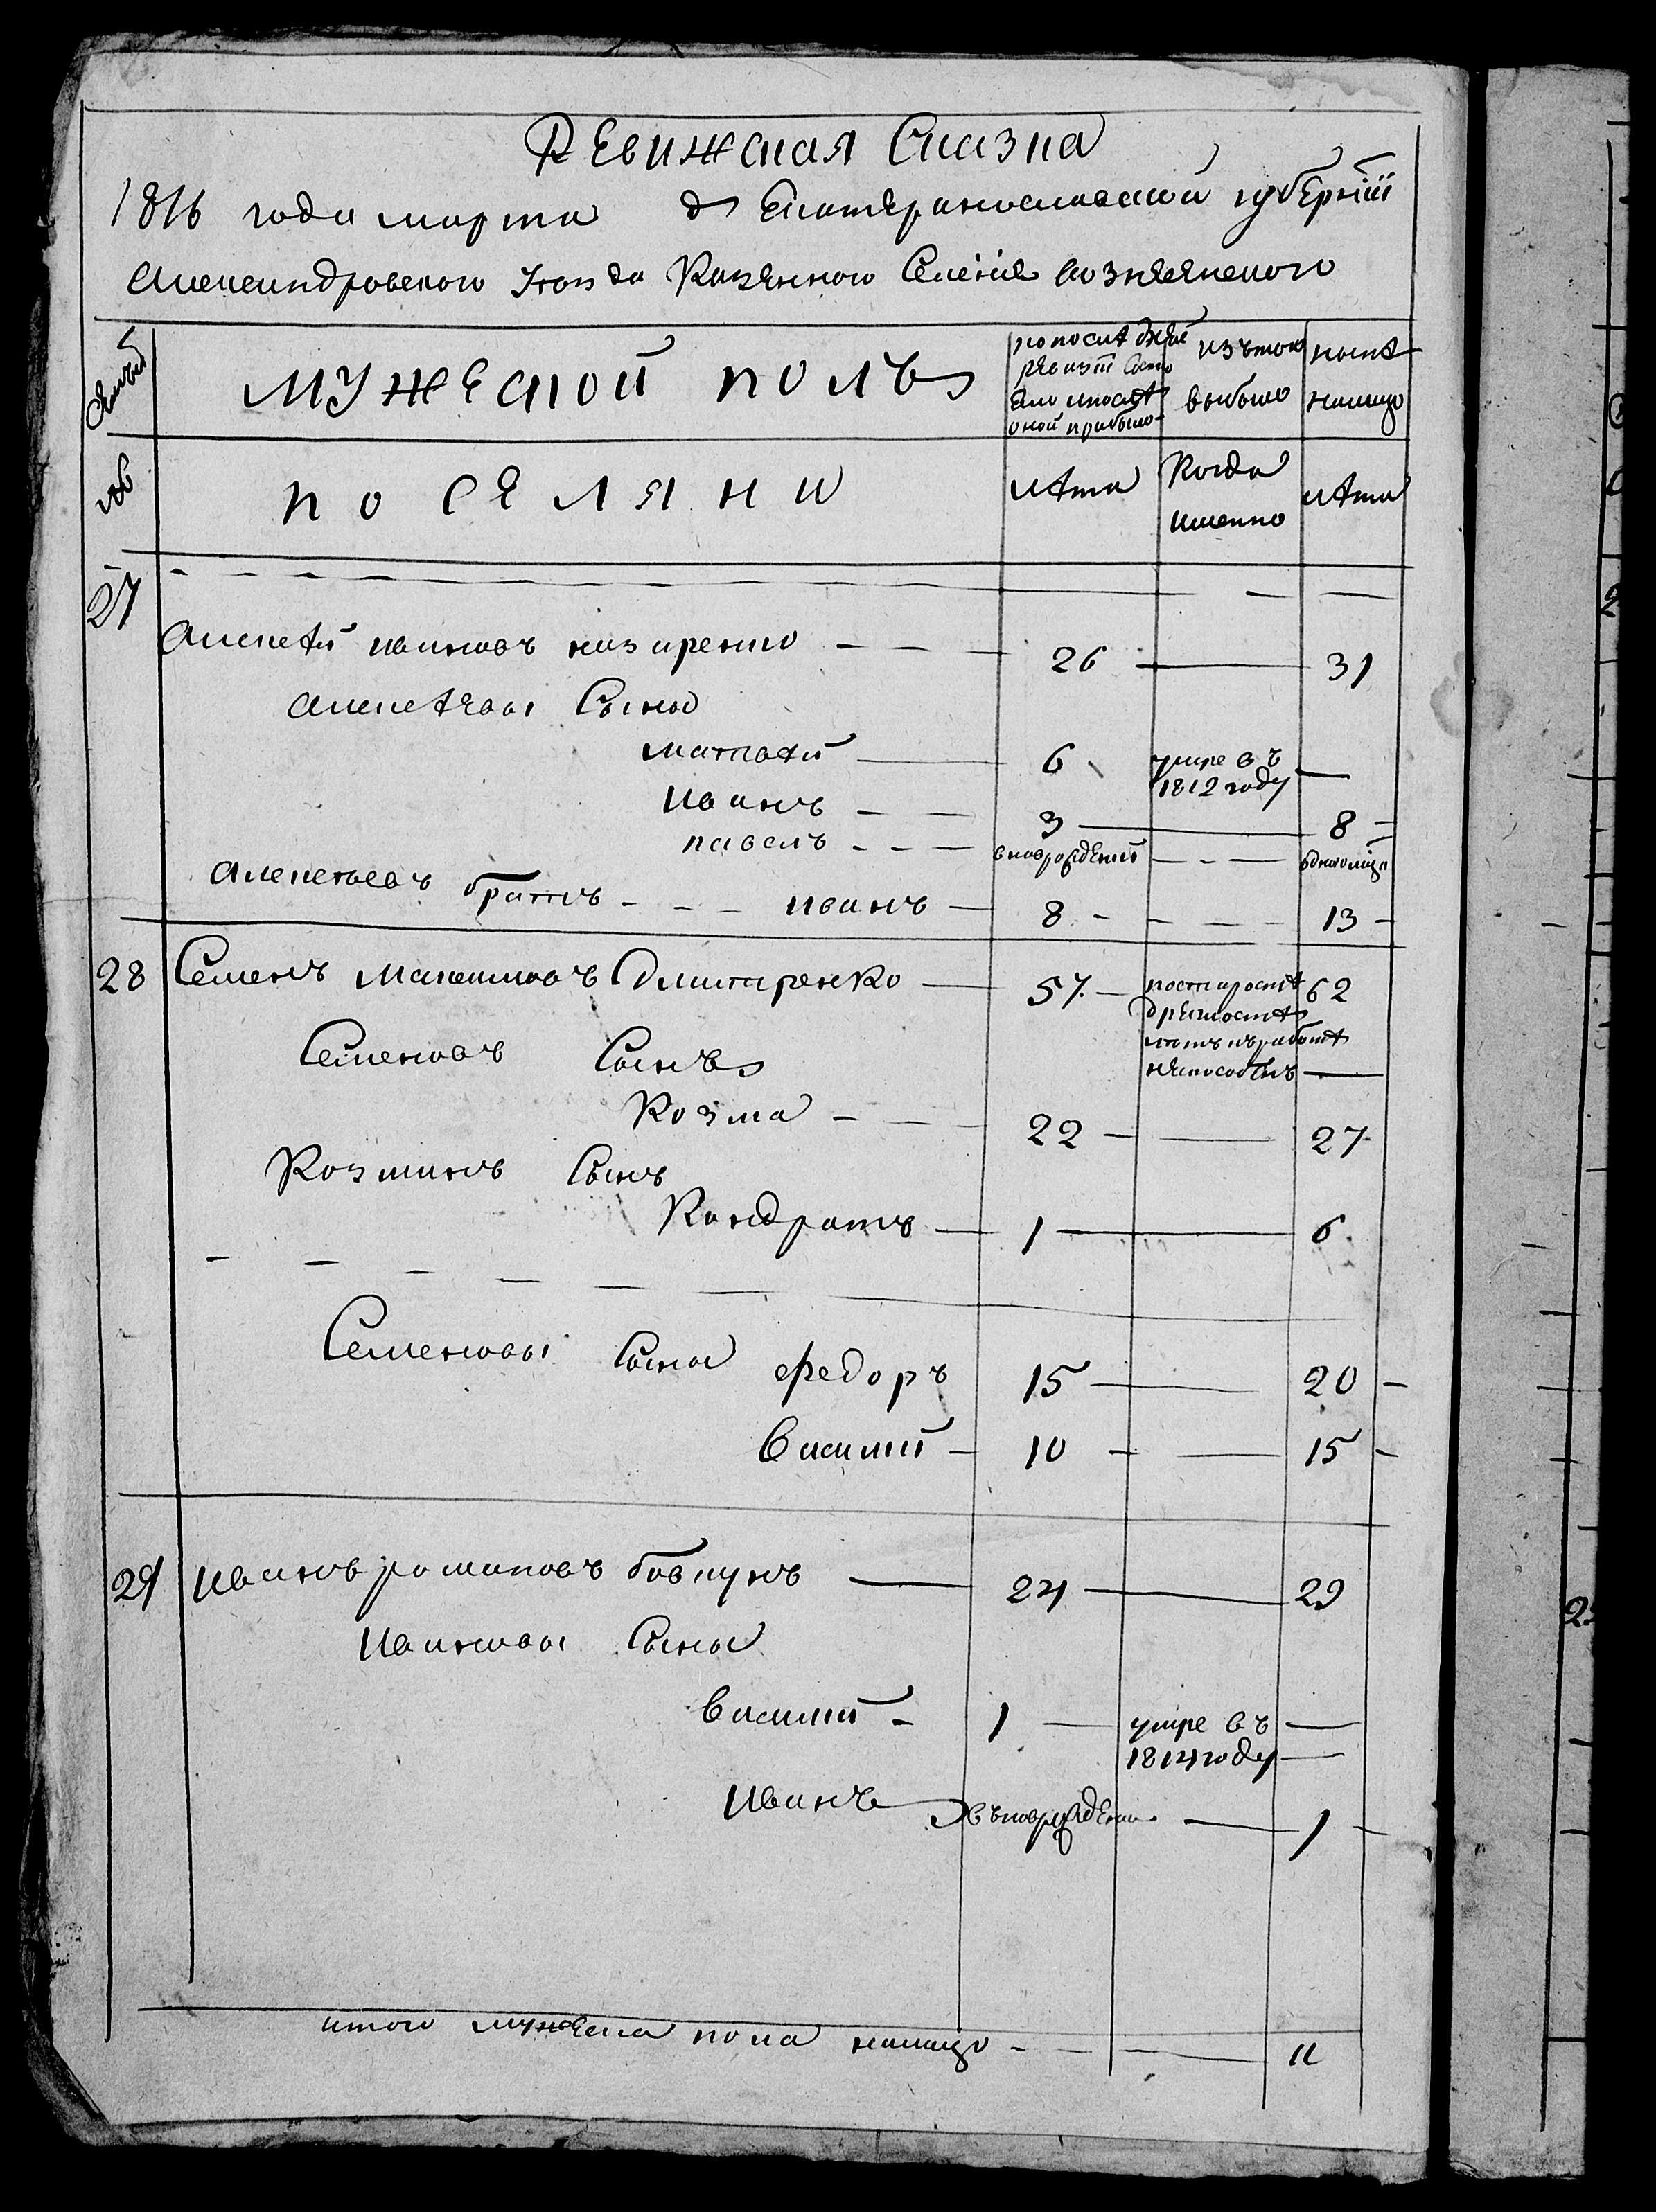 Ревижская Сказка
1816 года марта дъ Екатериносласкои губернїи
Александровского Уезда Казенного Селенїя вознесенского
Семьи
мужеской полъ
по последней ревизїи состояло и после оной прибыло
изътого выбыло
ныне налицо
№
поселяни
лета
Когда имянно
лета
27
Алексей ивановъ назаренко 26 31
Алексеевы Сыны
матвей 6 умре въ 1812 году
Иванъ 3 8
павелъ вновьрожденїй
Алексеевъ братъ иванъ 8 13
28 Семенъ Максимовъ Дмитренко 57 постарости дряхлости кътъ работе неспособенъ 62
Семеновъ Сынъ
Козма 22 27
Козминъ Сынъ
Кондратъ 1 6
Семеновы Сыны федоръ 15 20
Василїй 10 15
29 Иванъ романовъ бовкунъ 24 29
Ивановы Сыны
Василїй 1 умре въ 1814 году
Иванъ въновьрожденны 1
итого мужеска пола налицо 11